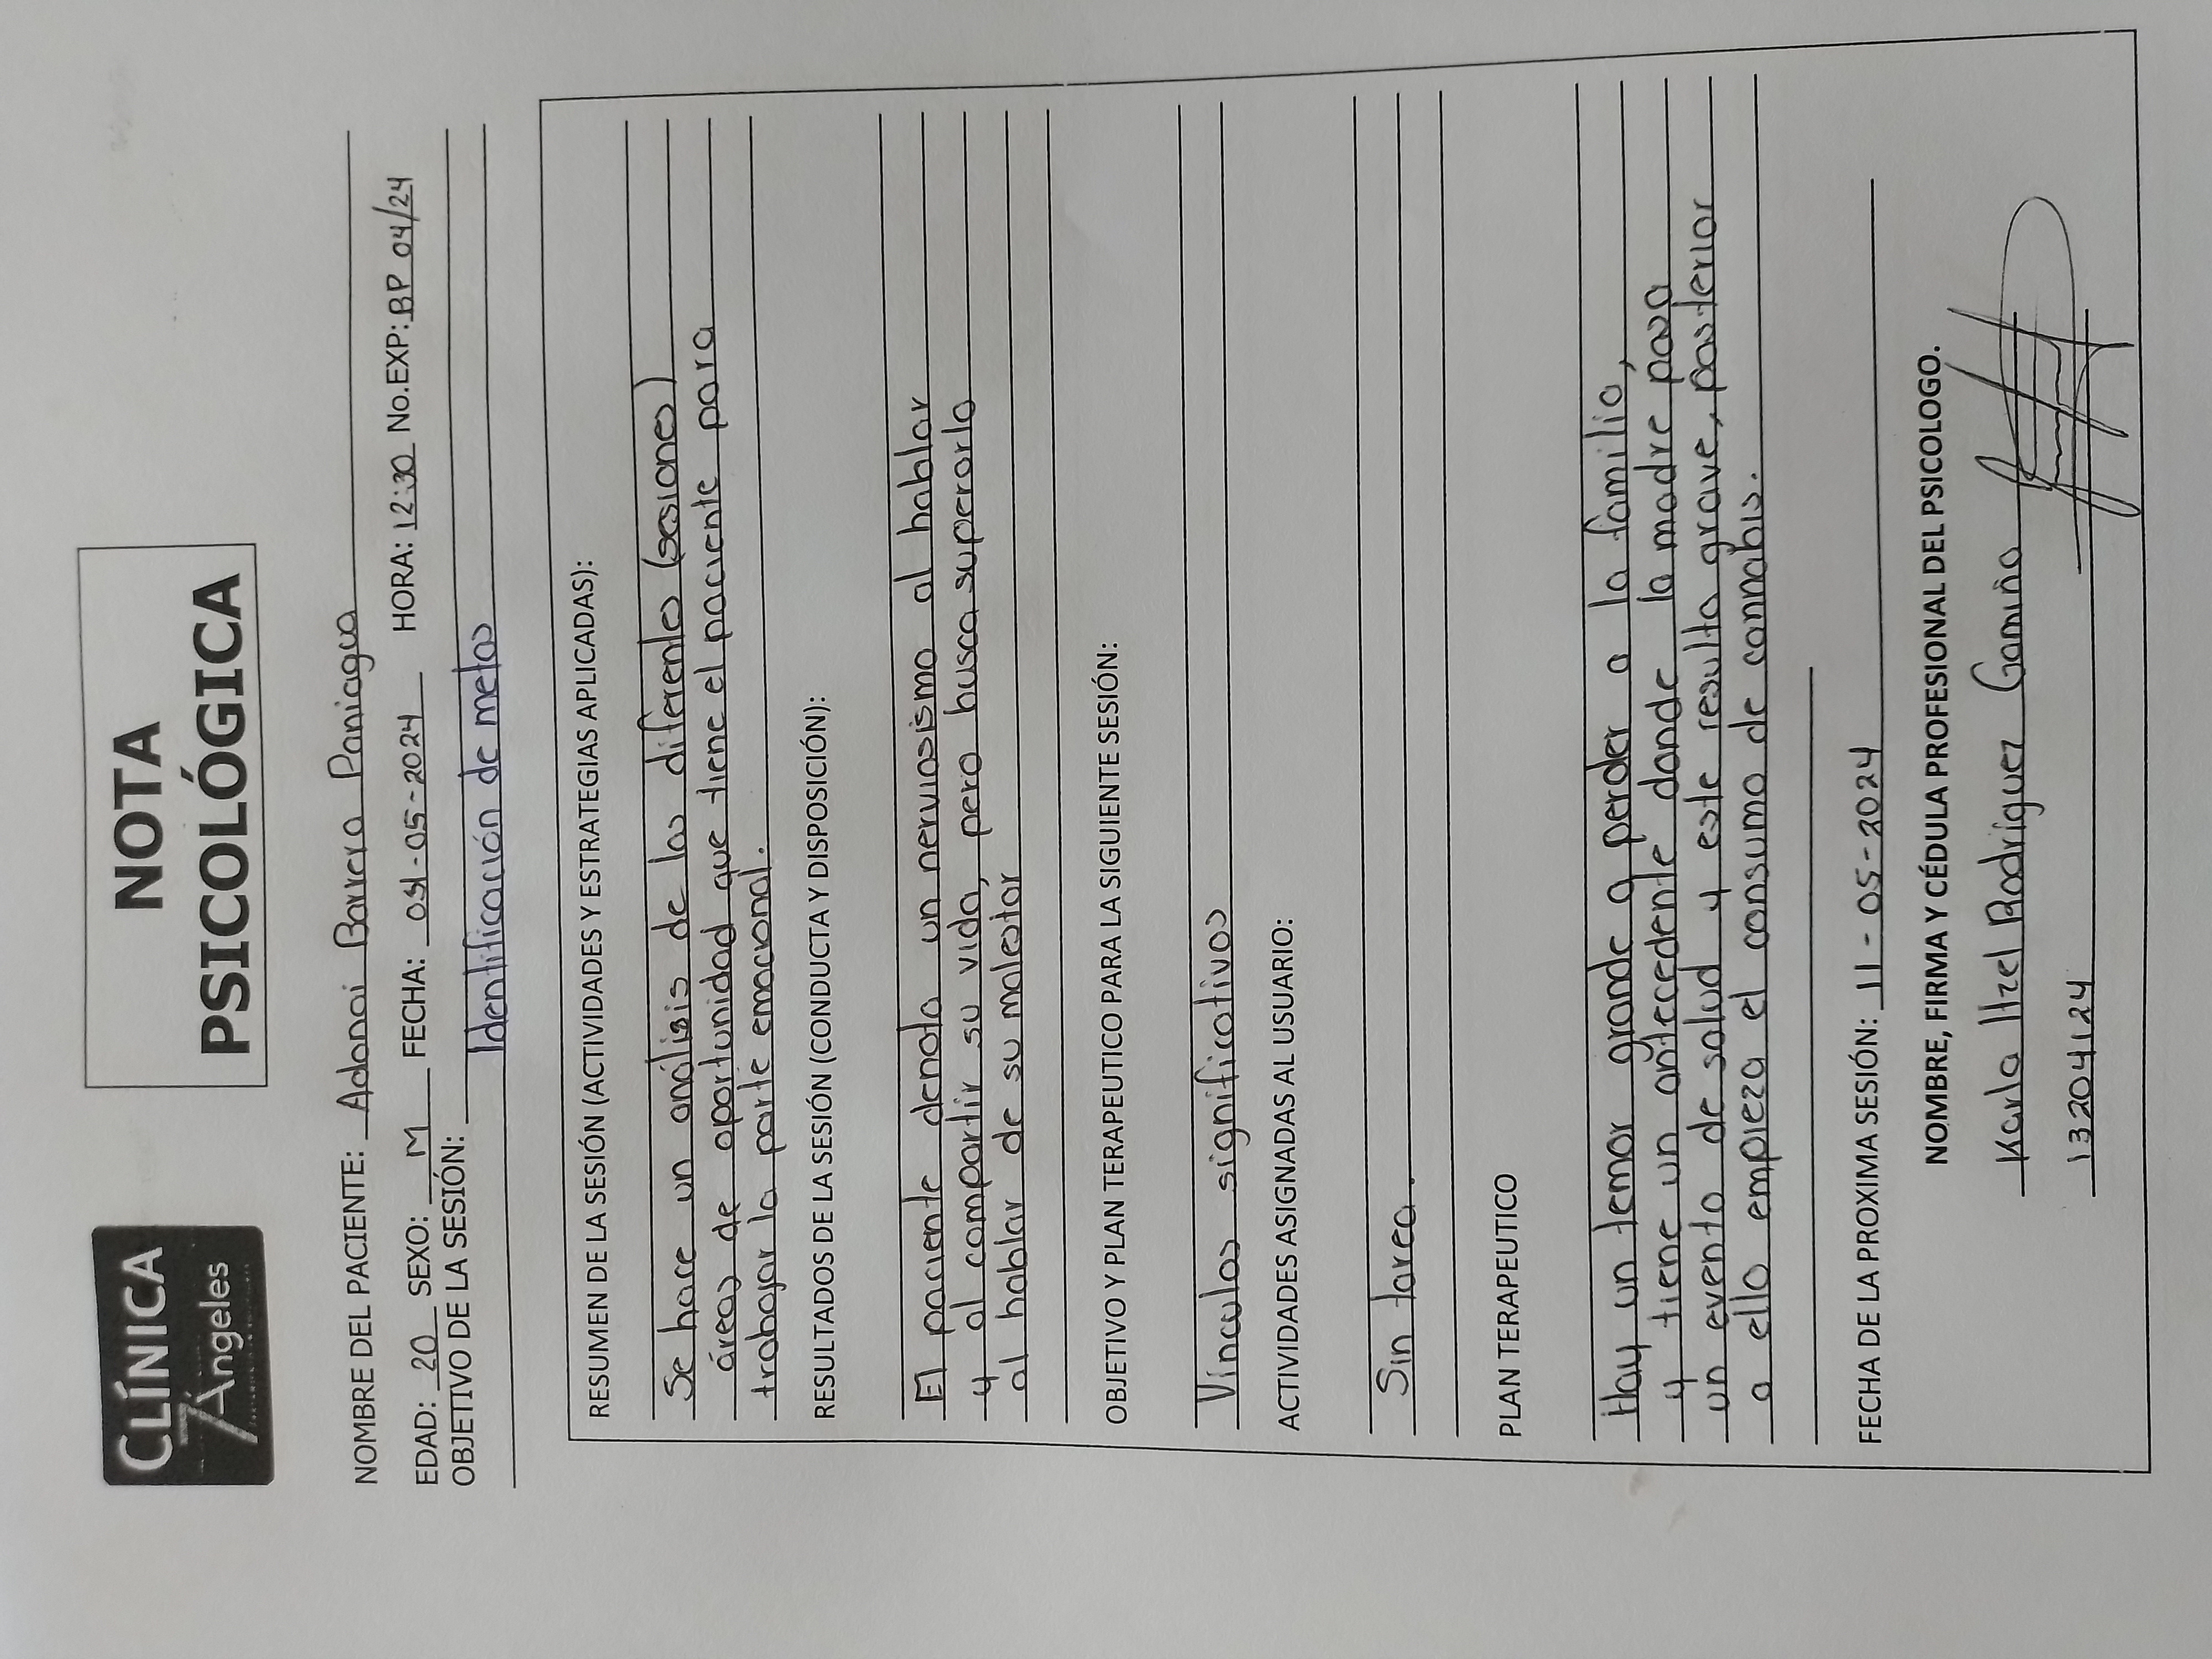 CLÍNICA
7 Ángeles
NOTA
PSICOLÓGICA
NOMBRE DEL PACIENTE: Adonai Barrera Paniagua
EDAD: 20 SEXO: M FECHA: 04-05-2024 HORA: 12:30 No.EXP: BP 04/24
OBJETIVO DE LA SESIÓN:
Identificación de metas
RESUMEN DE LA SESIÓN (ACTIVIDADES Y ESTRATEGIAS APLICADAS):
Se hace un análisis de las diferentes (sesiones)
áreas de oportunidad que tiene el paciente para
trabajar la parte emocional.
RESULTADOS DE LA SESIÓN (CONDUCTA Y DISPOSICIÓN):
El paciente denota un nerviosismo al hablar
y al compartir su vida, pero busca superarlo
al hablar de su malestar
OBJETIVO Y PLAN TERAPEUTICO PARA LA SIGUIENTE SESIÓN:
Vínculos significativos
ACTIVIDADES ASIGNADAS AL USUARIO:
Sin tarea.
PLAN TERAPEUTICO
Hay un temor grande a perder a la familia,
y tiene un antecedente donde la madre pasa
un evento de salud y este resulta grave, posterior
a ello empieza el consumo de cannabis.
FECHA DE LA PROXIMA SESIÓN: 11-05-2024
NOMBRE, FIRMA Y CÉDULA PROFESIONAL DEL PSICOLOGO.
Karla Itzel Rodríguez Gamiño
13204124